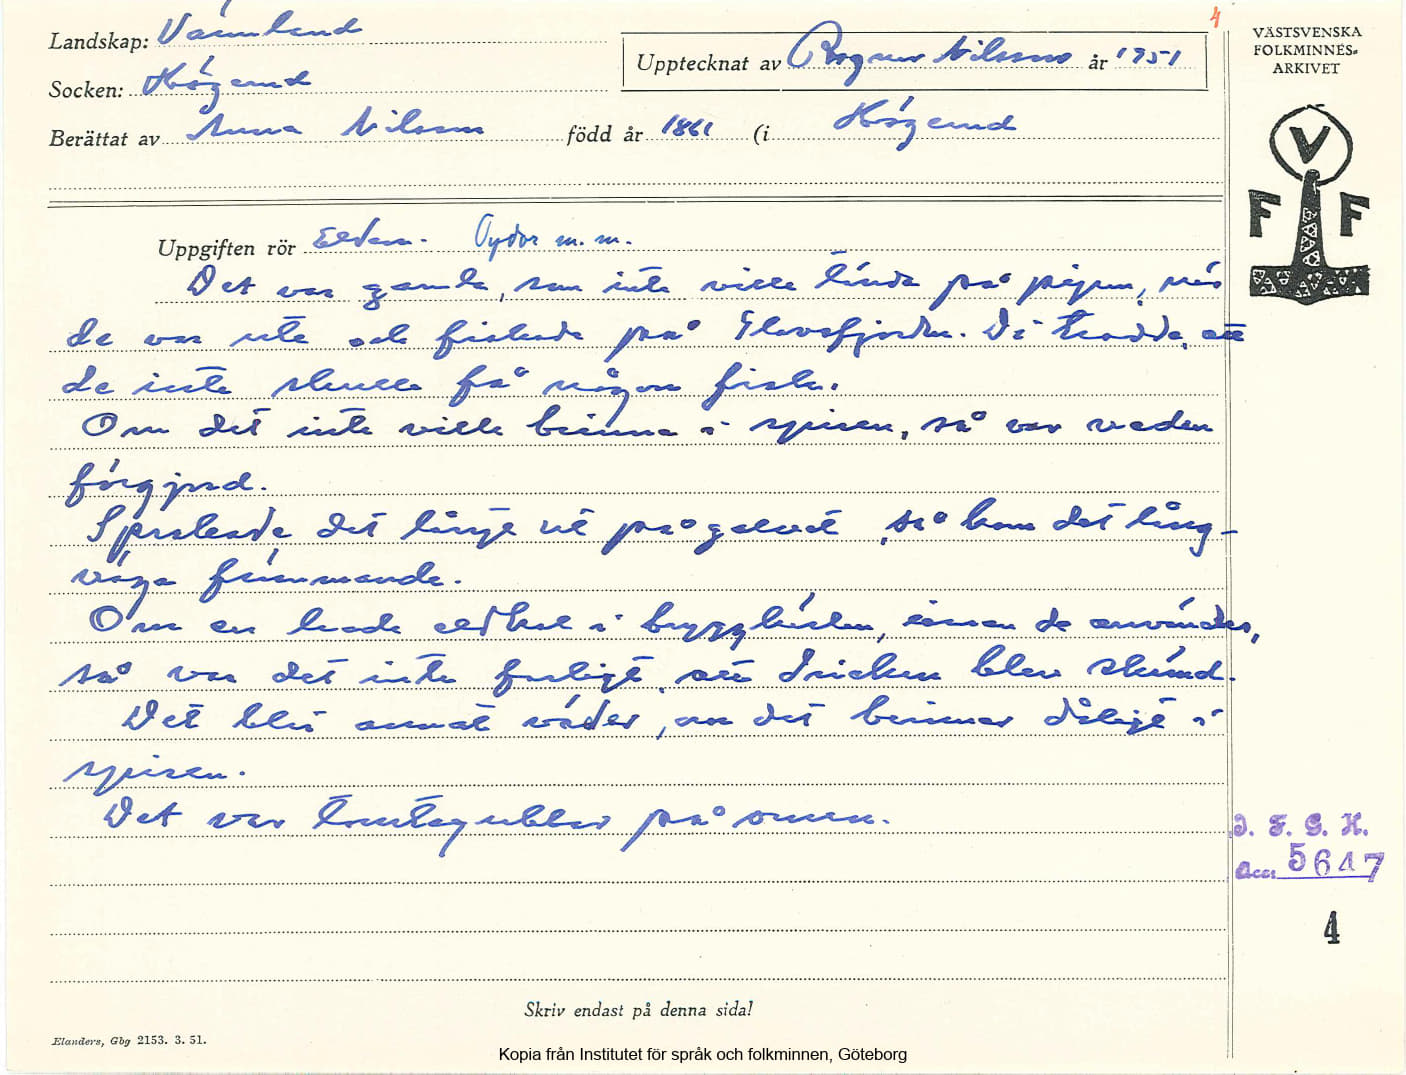 4
Landskap: Värmland
VÄSTSVENSKA
FOLKMINNES-
ARKIVET
Upptecknat av Ragnar Nilsson år 1951
Socken: Högerud
Berättat av Anna Nilsson född år 1861 (i Högerud
V
F F
Uppgiften rör Elden. Tydor m. m.
Det var gamla, som inte ville tända på pipan, när
de var ute och fiskade på Glavsfjorden. De trodde, att
de inte skulle få någon fisk.
Om det inte ville brinna i spisen, så var veden
förgjord.
Sprakade det långt ut på golvet, så kom det lång-
väga främmande.
Om en lade eldkol i bryggkärlen, innan de användes,
så var det inte farligt, att drickan blev skämd.
Det blir annat väder, om det brinner dåligt i
spisen.
Det var tomtegubbar på ornen.
I. F. G. H.
Acc. 5647
4
Skriv endast på denna sida!
Elanders, Gbg 2153. 3. 51.
Kopia från Institutet för språk och folkminnen, Göteborg